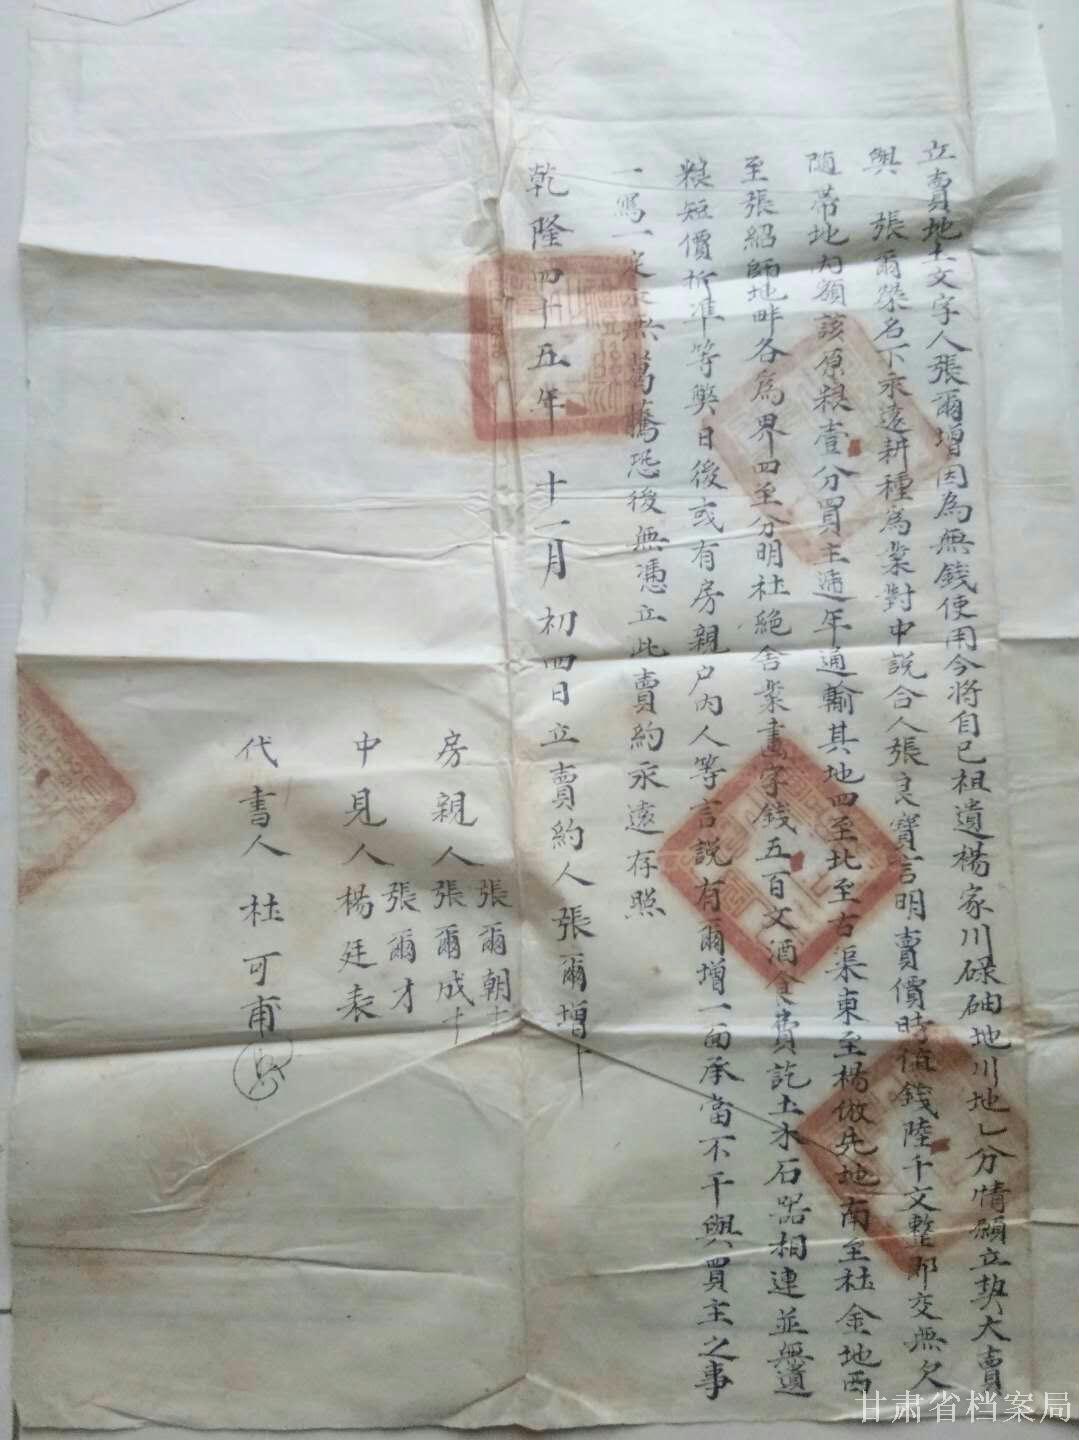 立賣地土文字人張爾增因為無錢使用今將自己祖遺楊家川碌砷地川地乚分情願立契大賣
與 張爾榮名下永遠耕種為業對中說合人張良寶言明賣價時值錢陸千文整即交無欠
隨帶地內額該原粮壹分買主逓年通輸其地四至北至古渠東至楊倣先地南至杜金地西
至張紹師地畔各為界四至分明杜絕舎業畫字錢五百文酒食費訖土木石器相連並無遺
粮短價折準等獘日後或有房親户內人等言説有爾增一面承當不干與買主之事
一寫一定永無葛騰恐後無憑立此賣約永遠存照
乾隆四十五年 十一月初四日立賣約人張爾增十
房親人張爾朝十
張爾成十
中見人張爾才
楊廷表
代書人杜可甫
甘肃省档案局